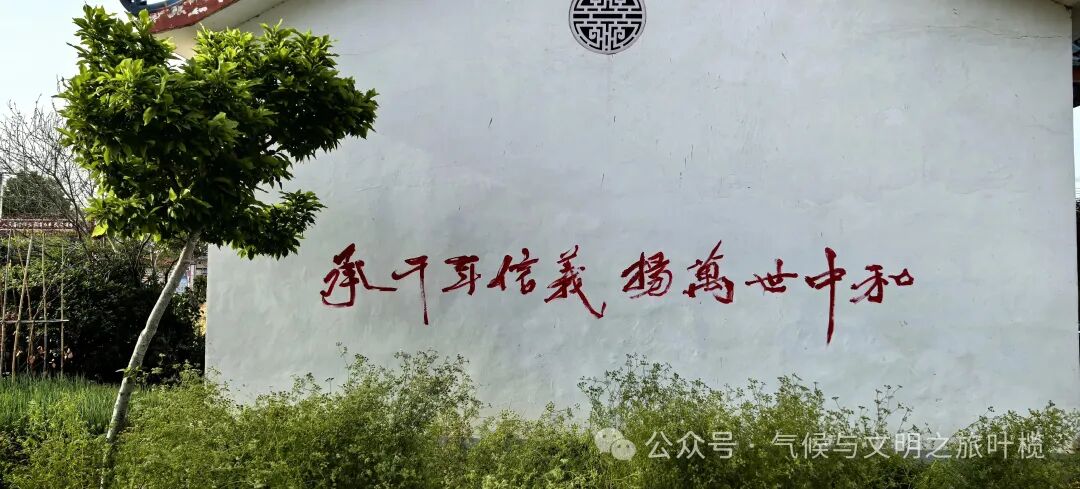 承千年信義 揚萬世中和
公众号·气候与文明之旅叶榄